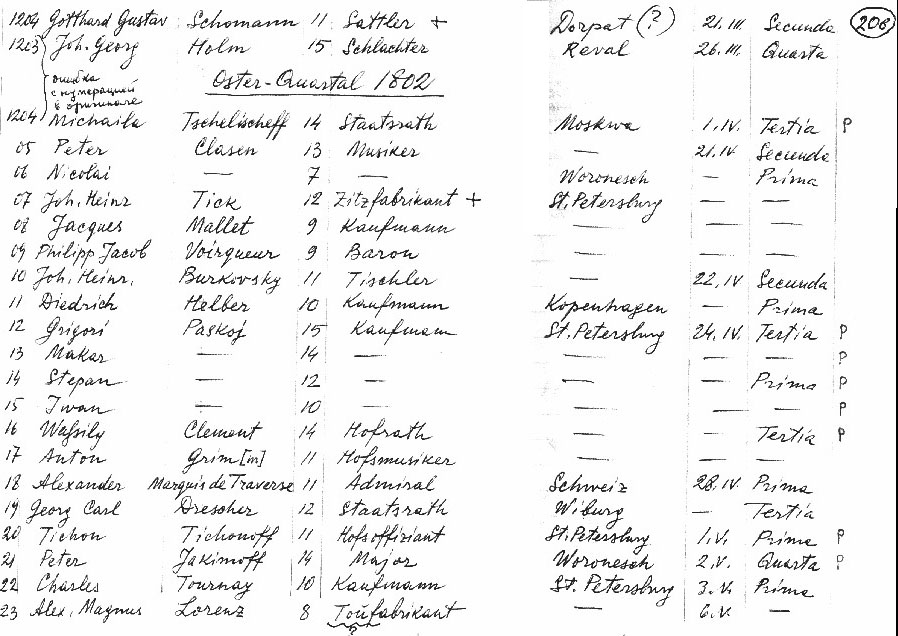 1204 Gotthard Gustav Schomann 11 Sattler + Dorpat (?) 21. III. Secunda 206
1203 Joh. Georg Holm 15 Schlachter Reval 26. III. Quarta
ошибка
с нумерацией
в оригинале
Oster-Quartal 1802
1204 Michaila Tschelischeff 14 Staatsrath Moskwa 1. IV. Tertia P
05 Peter Clasen 13 Musiker — 21. IV. Secunda
06 Nicolai — 7 — Woronesch — Prima
07 Joh. Heinr Tick 12 Zitzfabrikant + St. Petersburg — —
08 Jacques Mallet 9 Kaufmann — — —
09 Philipp Jacob Voirqueur 9 Baron — — —
10 Joh. Heinr. Burkovsky 11 Tischler — 22. IV. Secunda
11 Diedrich Helber 10 Kaufmann Kopenhagen — Prima
12 Grigori Paskoj 15 Kaufmann St. Petersburg 24. IV. Tertia P
13 Makar — 14 — — — — P
14 Stepan — 12 — — — Prima P
15 Iwan — 10 — — — P
16 Waßily Clement 14 Hofrath — — Tertia P
17 Anton Grim[m] 11 Hofmusiker — — —
18 Alexander Marquis de Traverse 11 Admiral Schweiz 28. IV. Prima
19 Georg Carl Drescher 12 Staatsrath Wiburg — Tertia
20 Tichon Tichonoff 11 Hofsoffiziant St. Petersburg 1. V. Prima P
21 Peter Jakimoff 14 Major Woronesch 2. V. Quarta P
22 Charles Tournay 10 Kaufmann St. Petersburg 3. V. Prima
23 Alex. Magnus Lorenz 8 Toufabrikant — 6. V. —
?